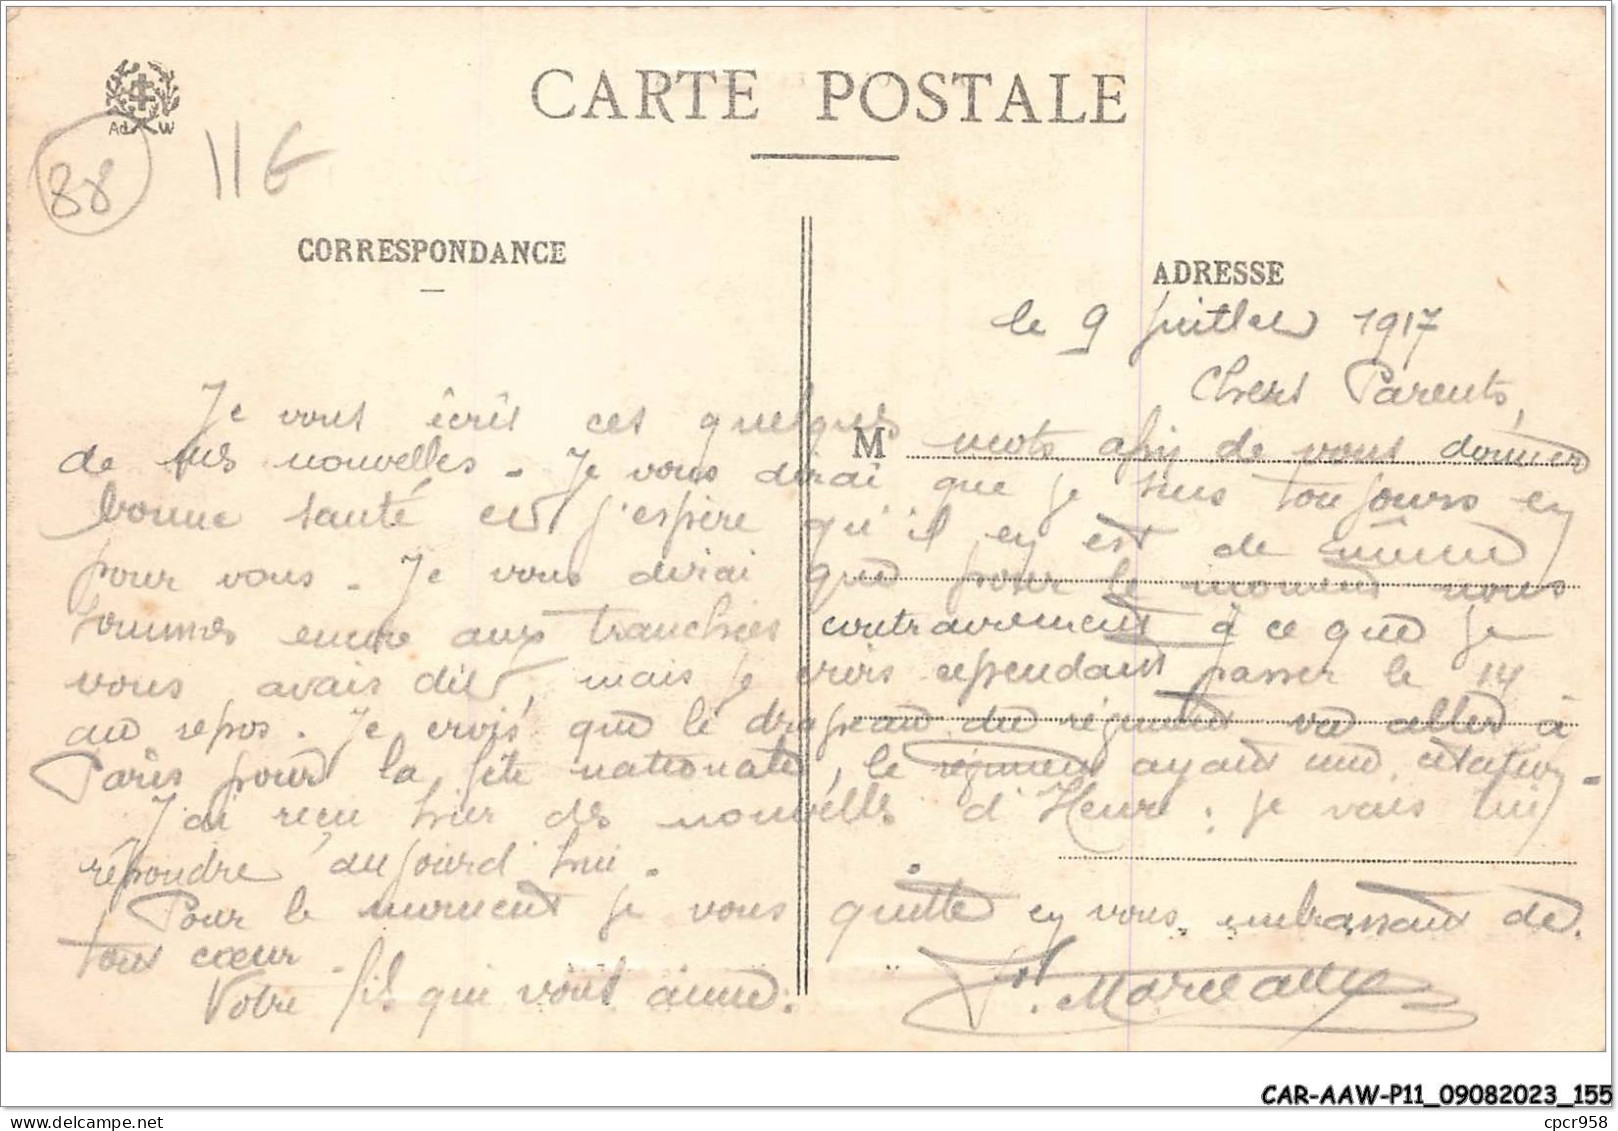 CARTE POSTALE
Ad W
88
11€
CORRESPONDANCE
ADRESSE
le 9 juillet 1917
Chers Parents,
M
Je vous écris ces quelques mots afin de vous donner
de mes nouvelles - Je vous dirai que je suis toujours en
bonne santé et j'espère qu'il en est de même
pour vous - Je vous dirai que pour le moment nous
sommes encore aux tranchées contrairement à ce que je
vous avais dit, mais je crois cependant passer le 14
au repos. Je crois que le drapeau du régiment va aller à
Paris pour la fête nationale, le régiment ayant une citation -
J'ai reçu hier des nouvelles d'Henri ; je vais lui
répondre aujourd'hui.
Pour le moment je vous quitte en vous embrassant de
tout cœur -
Votre fils qui vous aime.
CAR-AAW-P11_09082023_155
cpcr958